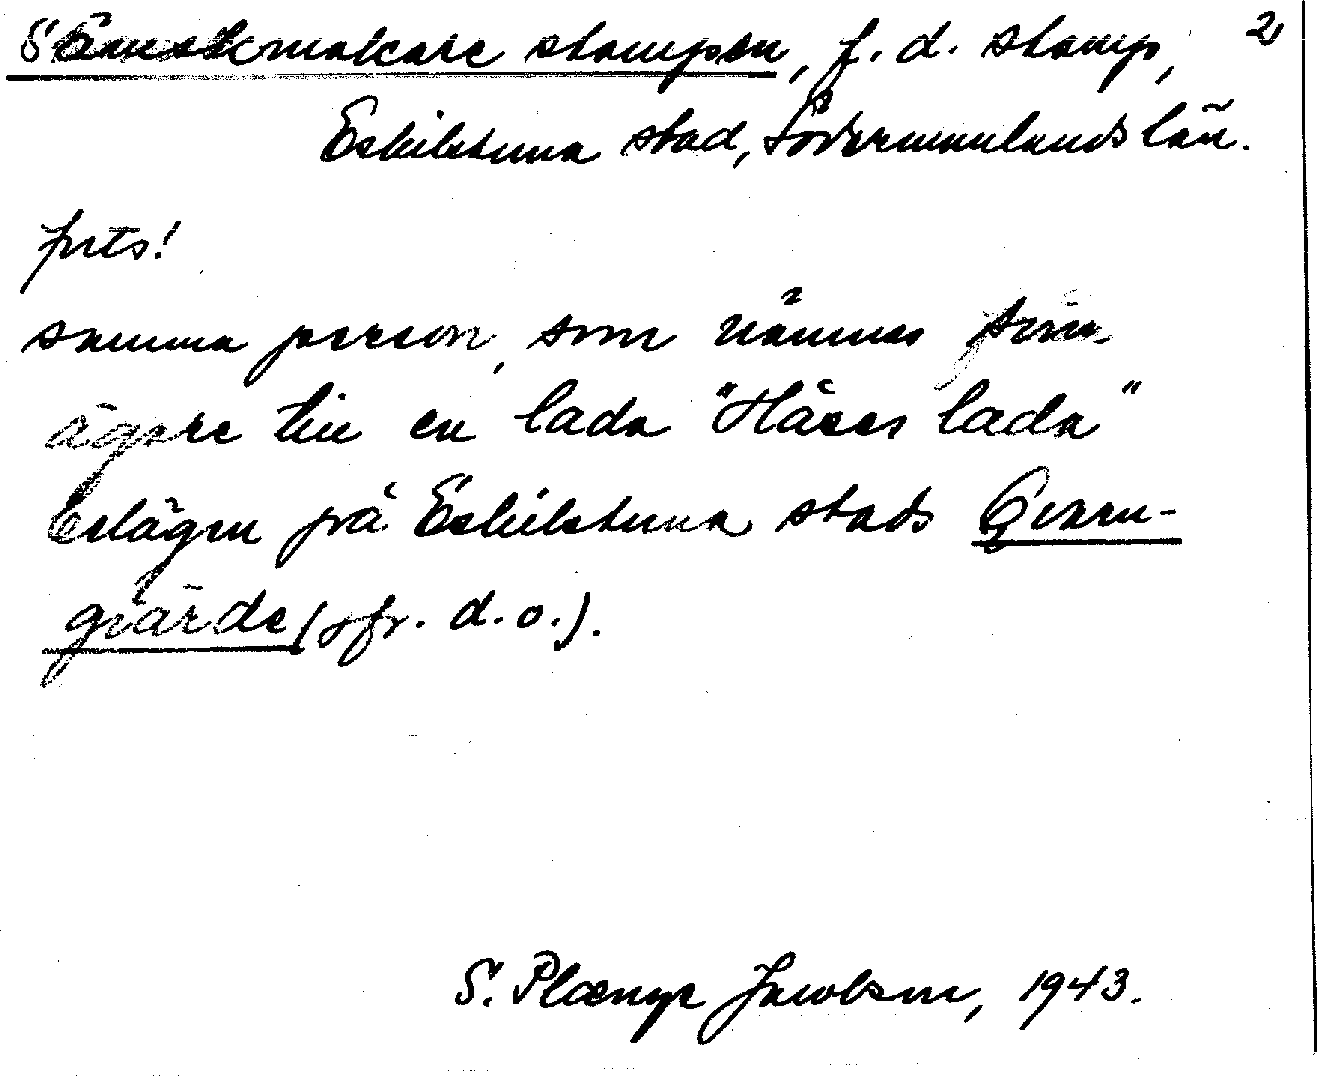 Sämskmakare stampen, f. d. stamp, 2
Eskilstuna stad, Södermanlands län.
forts!
samma person, som nämnes som
ägare till en lada "Håses lada"
belägen på Eskilstuna stads Qvarn-
giärde (jfr. d. o.).
S. Plænge Jacobson, 1943.